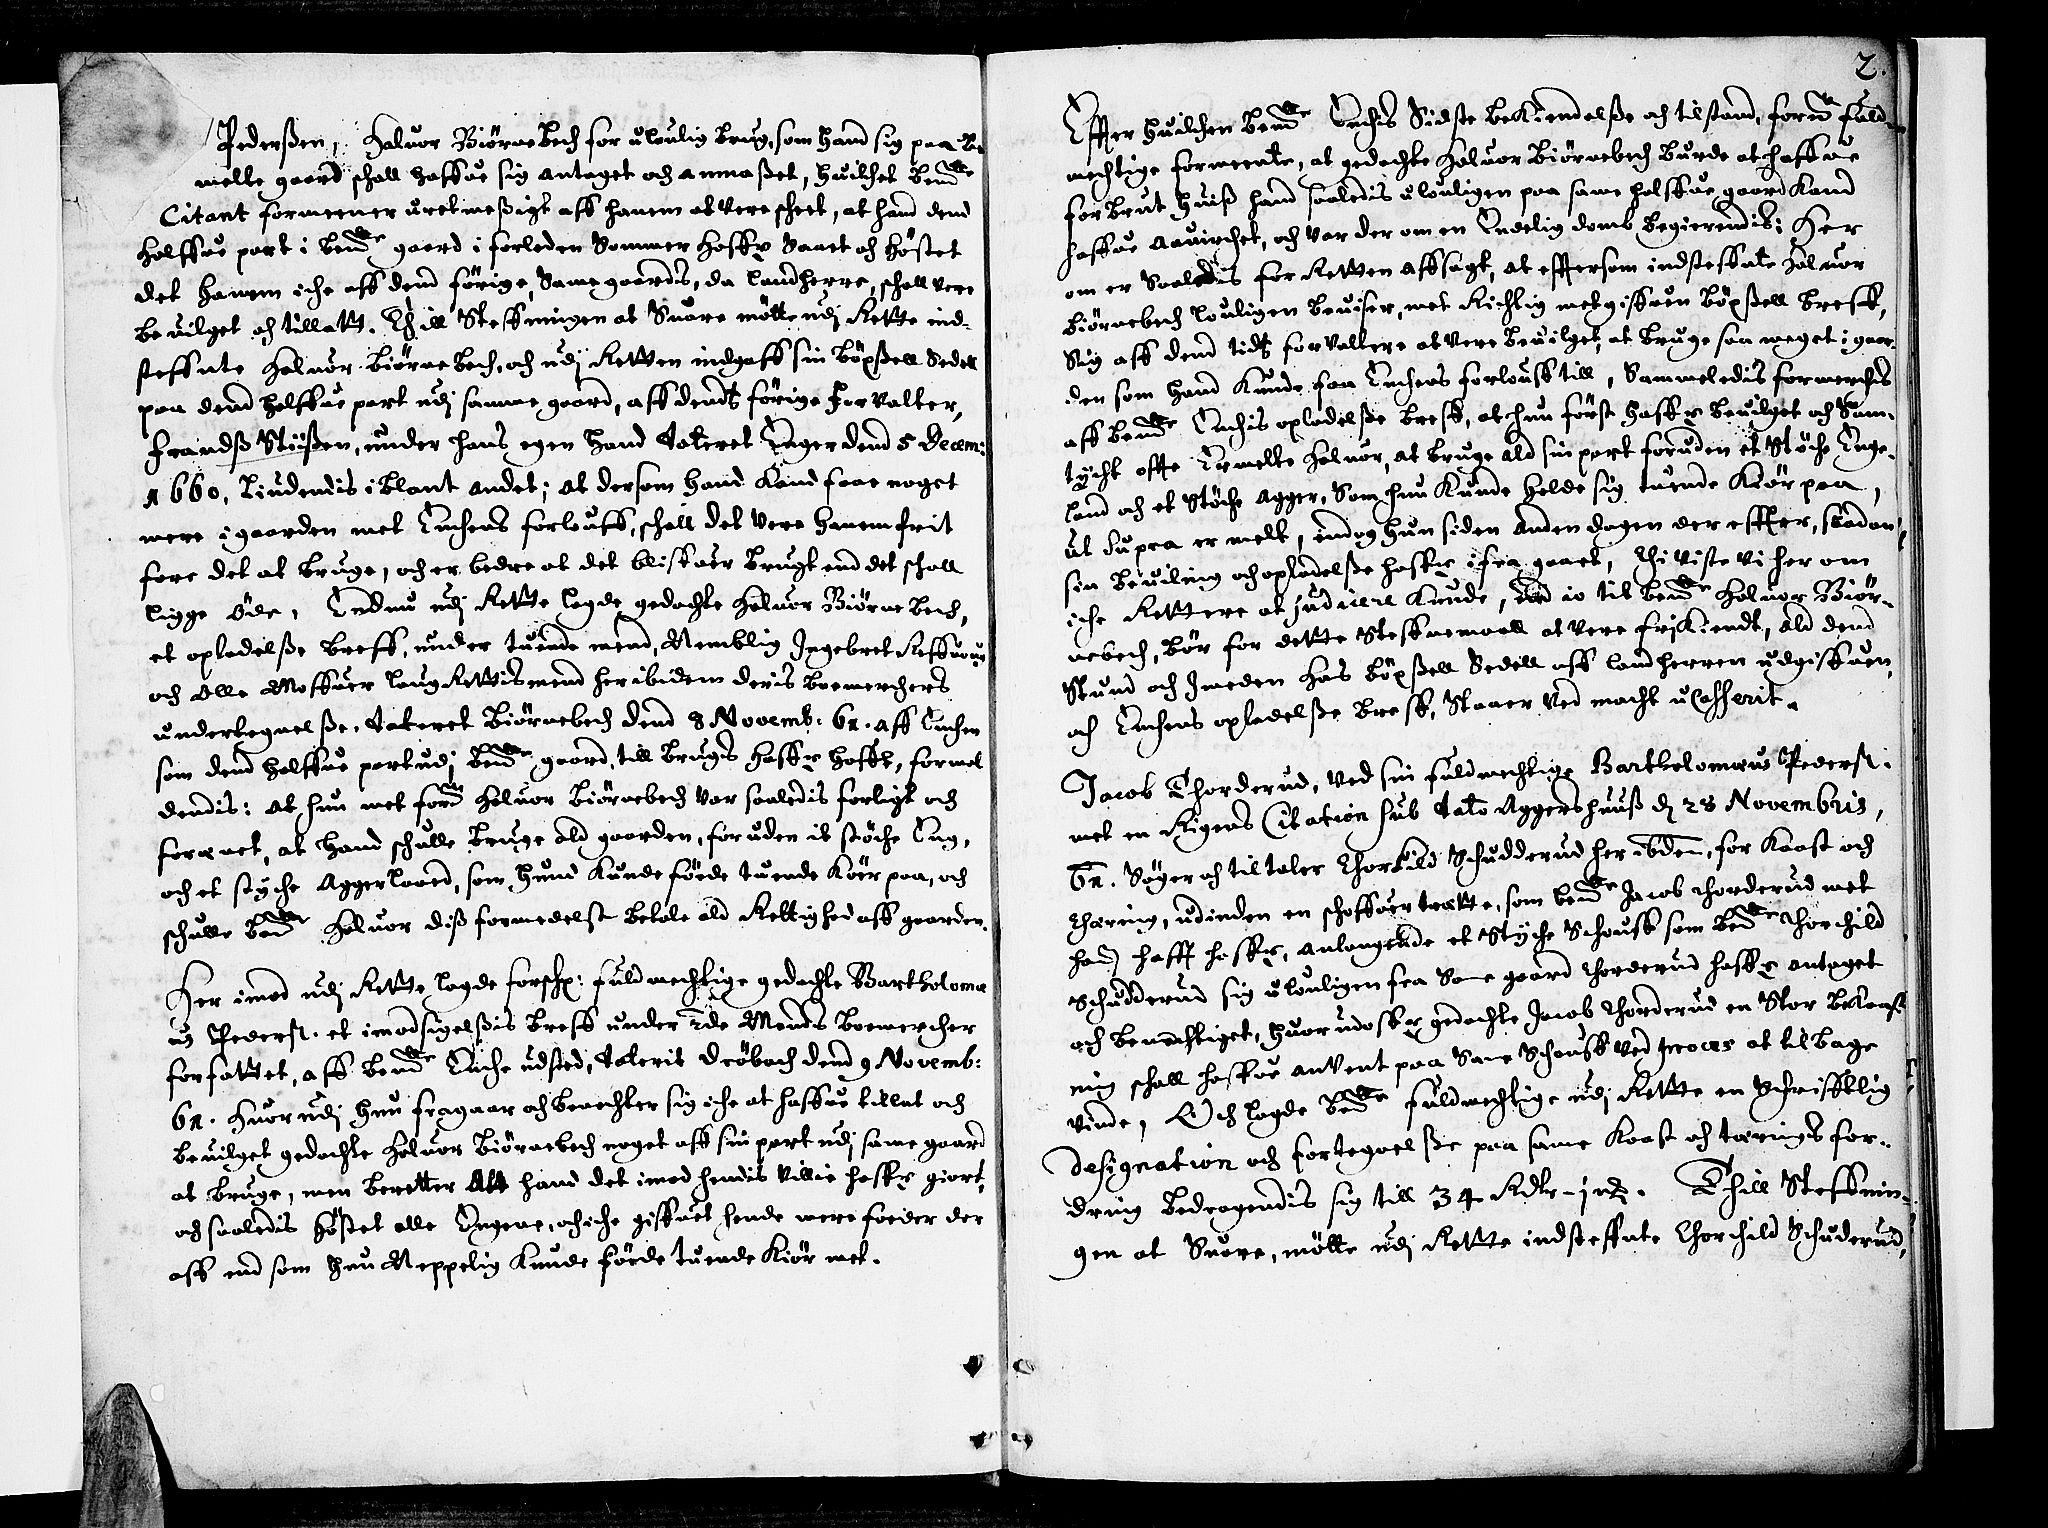 Pederßen, Haluor Biørnebech for uloulig brug, som hand sig paa be-
melte gaard schall haffue sig antaget och anmaßet, huilchet bemte
Citant formeener uretmeßigt aff hanem at vere scheet, at hand dend
halffue part i bemte gaard i forleden Sommer haffr saaet och høstet
det hanem iche aff dend førige, Samegaards, da landherre, schall vere
beuilget och tillatt. Thill Steffningen at Suare møtte udj Rette ind-
steffnte Haluor Biørnebech, och udj Retten indgaff sin bøxßell Sedell
paa dend halffue part udj samme gaard, aff dends førige Forvalter,
Frandß Stüßen, under hans egen hand dateret Enger dend 5 Decem:
1660. liudendis iblant andet; at dersom hand kand faae noget
mere i gaarden met Enchens forlouff, schall det vere hanem frit
fore det at bruge, och er bedre at det bliffuer brugt end det schall
ligge øde, Endnu udj Rette lagde gedachte Haluor Biørnebech,
et opladelße breff, under tuende mend, Nemblig Ingebret Reffuoug
och Olle Moffuer laugRettismend her ibidem deris boemerchers
undertegnelße, dateret Biørnebech dend 8 Novemb: 61. aff Enchen
som dend halffue part udj bemte gaard, till brugs haffr hafft, formel
dendis: at hun met forne Haluor Biørnebech var saaledis forligt och
foreenet, at hand schulle bruge ald gaarden, foruden it støche Eng,
och et styche Aggerlaand, som hund kunde føede tuende Køer paa, och
schulle bemte Haluor diß formedelst betale ald Rettighed aff gaarden.
Her imod udj Rette lagde forschr: fuldmechtige gedachte Bartholomæ
us Pederß. et imodsigelßis breff under 2de Mends boemercher
forfattet, aff bemte Enche udsted, daterit Drøbach dend 9 Novemb:
61. huor udj hun fragaar och benechter sig iche at haffue tillat och
beuilget gedachte Haluor Biørnebech noget aff sin part udj same gaard
at bruge, men beretter att hand det imod hendis villie haffr giort,
och saaledis høstet alle Engene, och iche giffuet hende mere foeder der
aff end som hun Neppelig kunde føede tuende Kiør met.
2.
Effter huilchen bemte Enchis Sidste bekiendelße och tilstaand, forne fuld-
mechtige formeente, at gedachte Haluor Biørnebech burde at haffue
forbrut huiß hand saaledis ulouligen paa same halffue gaard kand
haffue aauirchet, och var der om en Endelig domb begierendis: Her
om er Saaledis for Retten affsagt, at efftersom indsteffnte Haluor
Biørnebech louligen beuiser, met Richtig metgiffuen bøxßell breff,
Sig aff dend tids forvaltere at vere beuilget, at bruge saa meget i gaar-
den som hand kunde faa Enchens forlouff till, Sammeledis formerchis
aff bemte Enchis opladelße breff, at hun først haffr beuilget och Sam-
tycht offte Ermelte Haluor, at bruge ald sin part foruden et Støche Enge-
land och et Støche Agger, Som hun kunde holde sig tuende Kiør paa,
ut supra ermelt, endog hun siden anden dagen der effter, saadan
sin beuiling och opladelße haffr ifra gaaet, Thi viste vi her om
iche Rettere at judicere kunde, end io til bemte Haluor Biør-
nebech, bør for dette Steffnemaall at vere frjkiendt, ald dend
Stund och Imeden has bøxßell Sedell aff landherren udgiffuen,
och Enchens opladelße breff, Staaer ved macht uCasserit.
Jacob Thorderud, ved sin fuldmechtige Bartholomæus Pederß.
met en Rigens Citation sub dato Aggershuuß d 28 Novembris,
61. Søger och tiltaler Thorkild Schudderud her ibden, for Kaast och
thæring, udinden en schoffuer trætte, som bemte Jacob Thorderud met
ham hafft haffr, anlangende et Styche Schouff som bemte Thorchild
Schudderud sig ulouligen fra Same gaard Thorderud haffr antaget
och bemechtiget, huor udoffr gedachte Jacob Thorderud en Stor bekaast
ning schall haffue anvent paa Same Schouff ved proces at tilbage
vinde, Och lagde bemte fuldmechtige udj Rette en Schrifftlig
designation och fortegnelße paa same Kaast och tærings for-
dring bedragendis sig till 34 Rdlr - j ort. Thill Steffnin-
gen at Suare, møtte udj Rette indsteffnte Thorchild Schuderud,